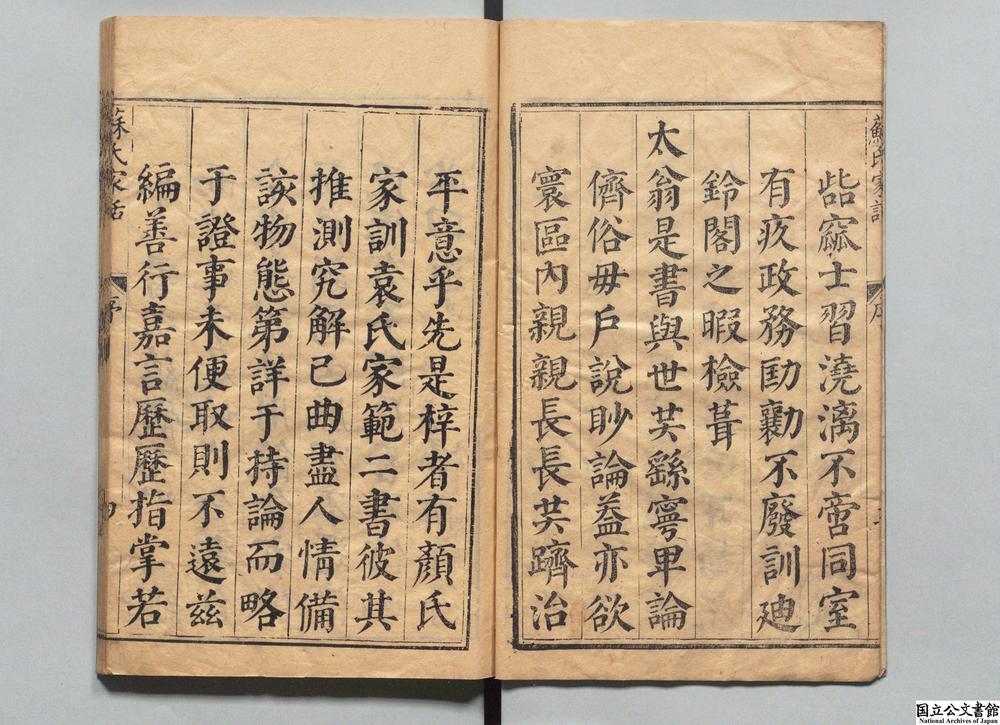 蘇氏家話
呰窳士習澆漓不啻同室
有疚政務勤勷不廢訓廸
鈴閣之暇檢葺
太翁是書與世共繇寧甲論
儕俗毋戶說眇論葢亦欲
寰區內親親長長共躋治
平意乎先是梓者有顏氏
家訓袁氏家範二書彼其
推測究解已曲盡人情備
該物態第詳于持論而略
于證事未便取則不遠兹
編善行嘉言歷歷指掌若
蘇氏家話
序
四
国立公文書館
National Archives of Japan